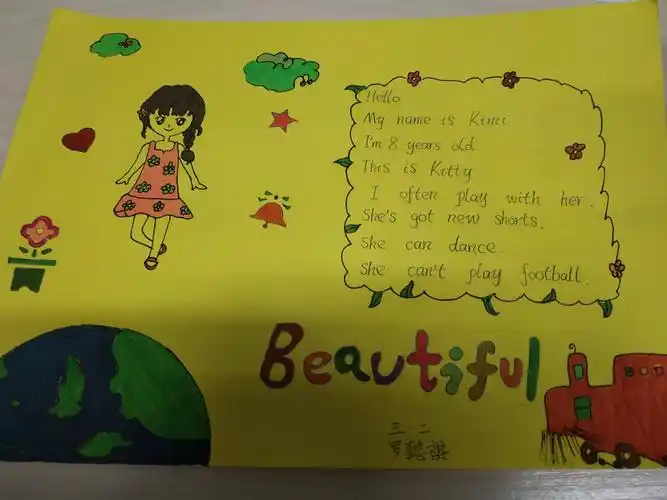 Hello
My name is Kimi
I'm 8 years old
This is Kitty
I often play with her.
She's got new shorts.
she can dance.
she can't play football.
Beautiful
三 二
罗懿祺